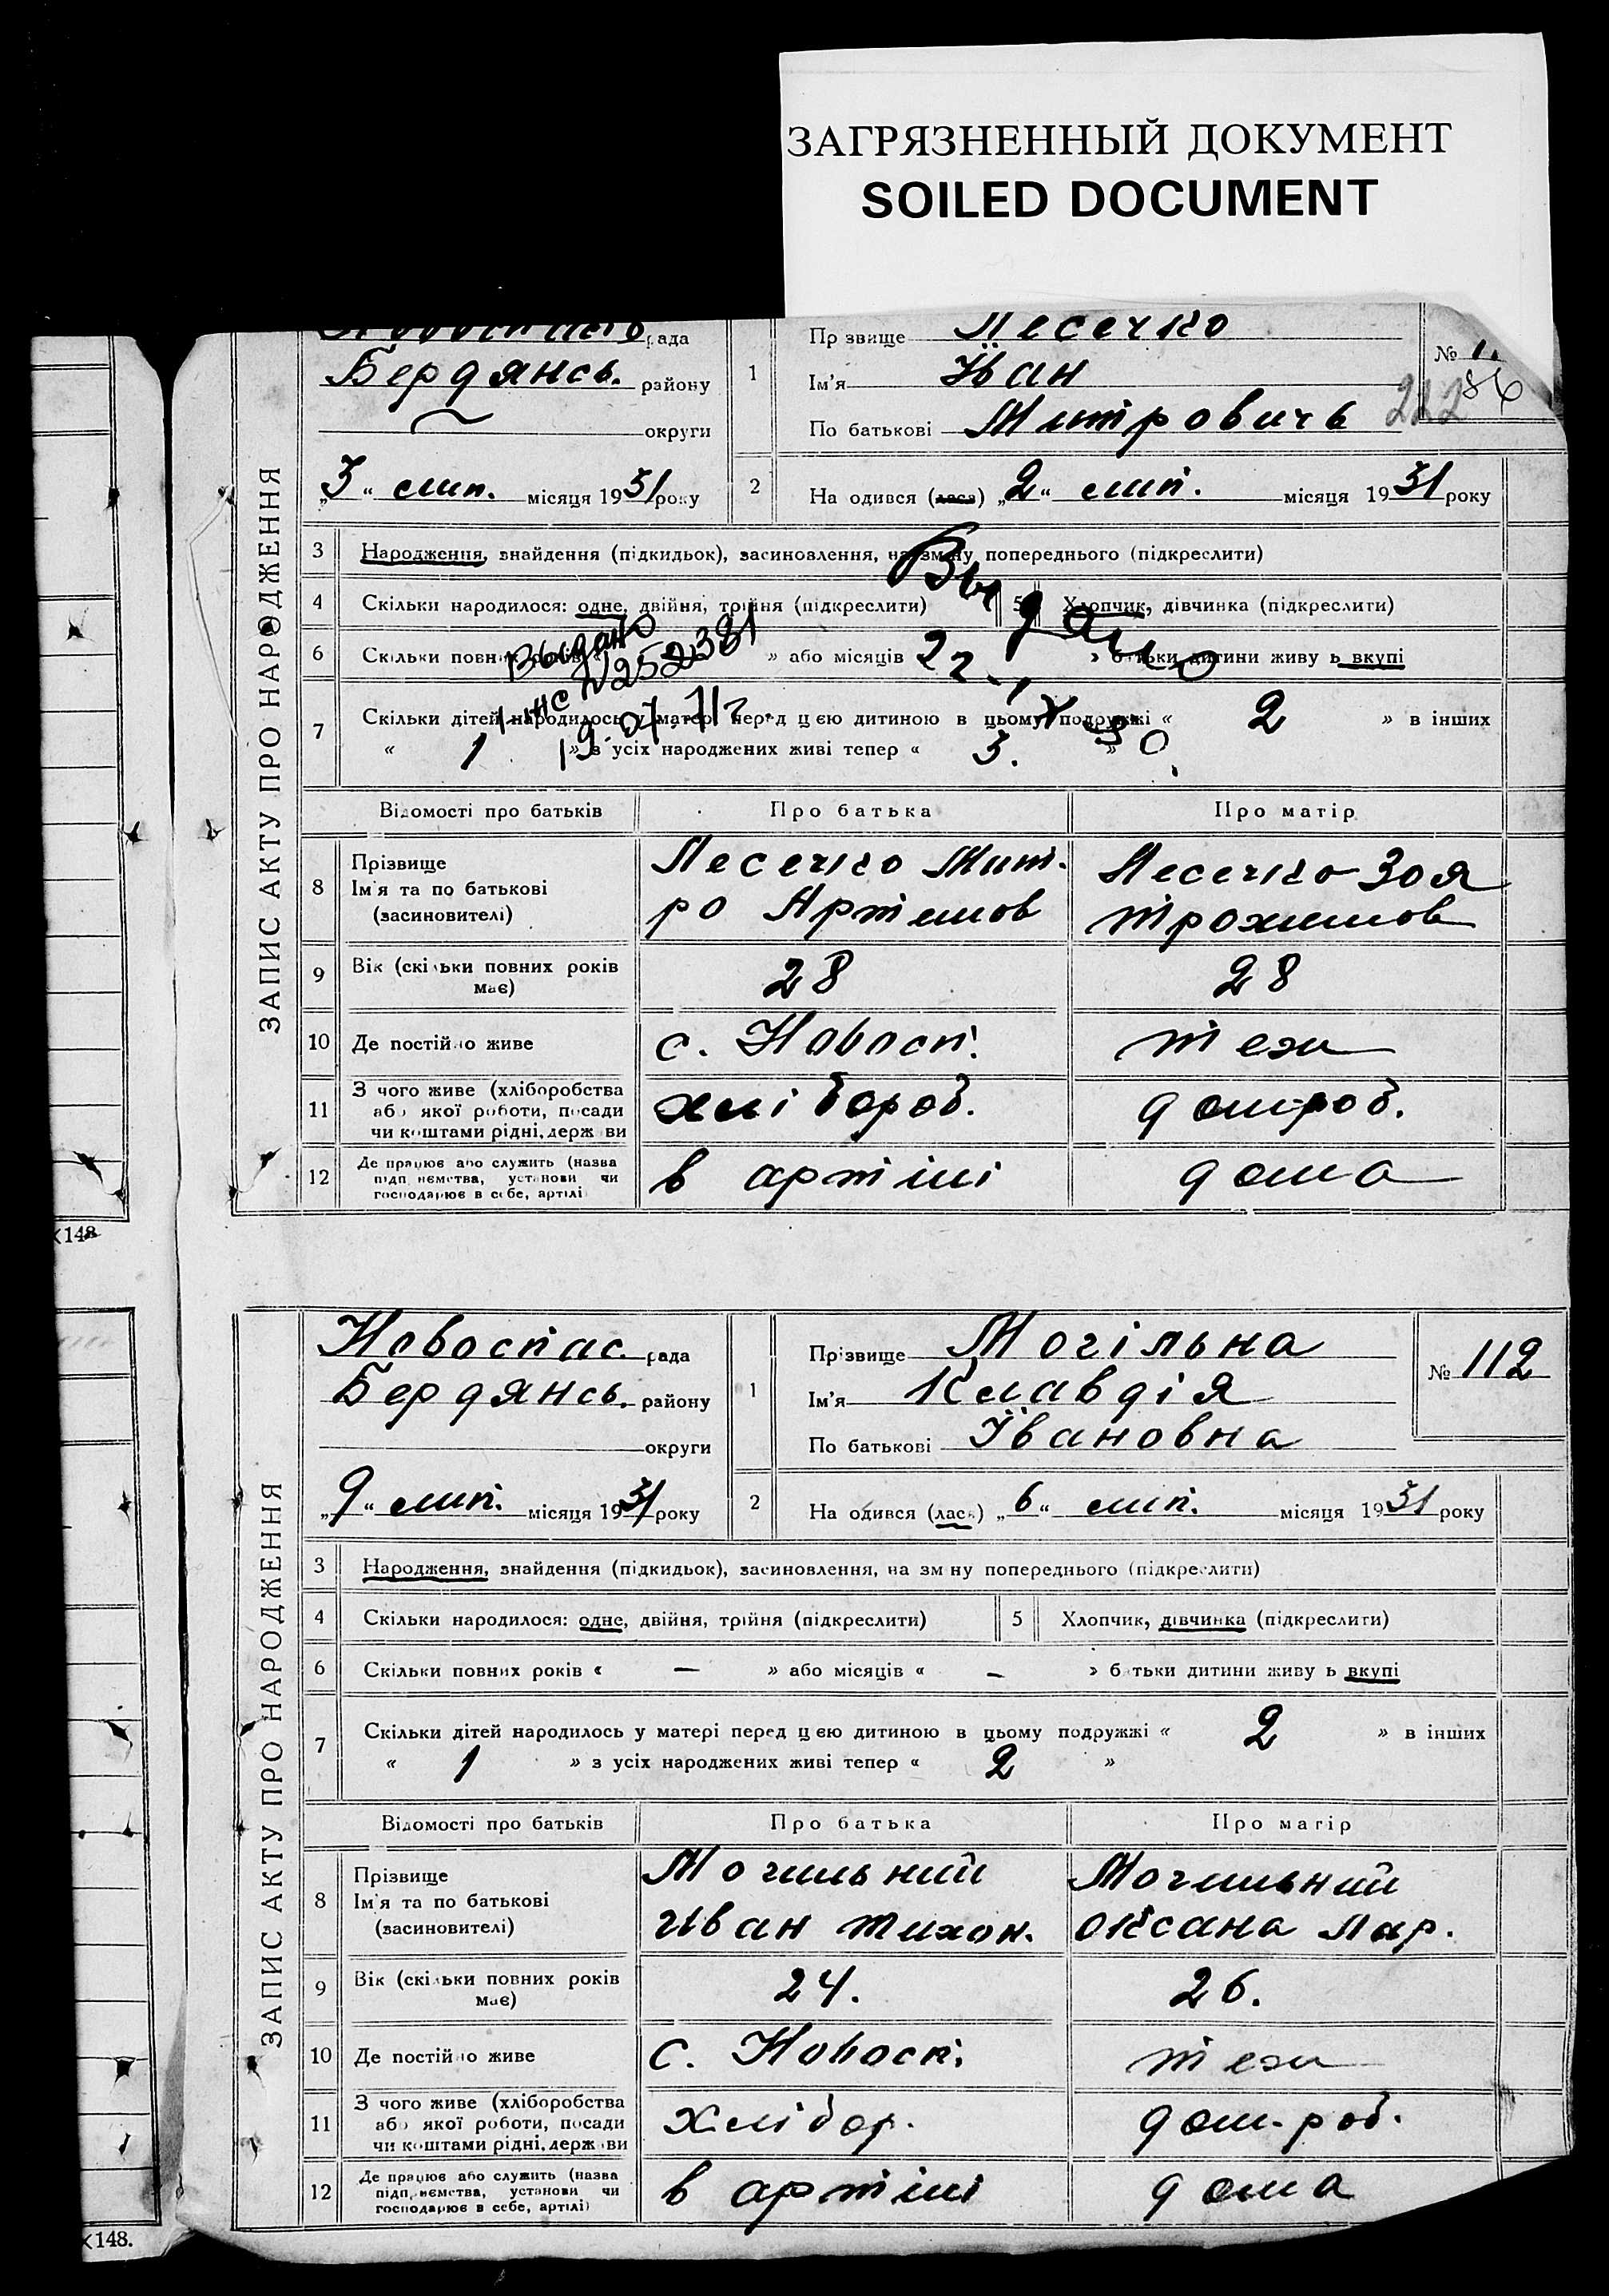 ЗАГРЯЗНЕННЫЙ ДОКУМЕНТ
SOILED DOCUMENT
ЗАПИС АКТУ ПРО НАРОДЖЕННЯ
рада
Бердянсь. району
округи
„3“ лип. місяця 1931 року
1
Прзвище Лесечко
Ім'я Їван
По батькові Митровичь
№ 1.
86
212
2 На одився (лася) „2“ лип. місяця 1931 року
3 Народження, знайдення (підкидьок), засиновлення, на зміну попереднього (підкреслити)
4 Скільки народилося: одне, двійня, трійня (підкреслити) 5 Хлопчик, дівчинка (підкреслити)
6 Скільки повних » або місяців » батьки дитини живу ь вкупі
Выдано
22-IX 30.
Выдано
N 252381
19.07.71г.
7 Скільки дітей народилось у матері перед цею дитиною в цьому подружжі « 2 » в інших
« 1 » з усіх народжених живі тепер « 3. »
Відомості про батьків Про батька Про матір
8 Прізвище
Ім'я та по батькові
(засиновителі)
Лесечко Мит-
ро Артемов
Лесечко Зоя
Трохимов
9 Вік (скільки повних років
має)
28 28
10 Де постійно живе с. Новосп. теж
11 З чого живе (хліборобства
або якої роботи, посади
чи коштами рідні, держ ви
хлібороб. домроб.
12 Де працює або служить (назва
підп ємства, установи чи
господарює в себе, артілі
в артілі дома
К 148
ЗАПИС АКТУ ПРО НАРОДЖЕННЯ
Новоспас. рада
Бердянсь. району
округи
„9“ лип. місяця 1931 року
1
Прізвище Могільна
Ім'я Клавдія
По батькові Ївановна
№ 112
2 На одився (лася) „6“ лип. місяця 1931 року
3 Народження, знайдення (підкидьок), засиновлення, на зм ну попереднього (підкреслити)
4 Скільки народилося: одне, двійня, трійня (підкреслити) 5 Хлопчик, дівчинка (підкреслити)
6 Скільки повних років « — » або місяців « — » б тьки дитини живу ь вкупі
7 Скільки дітей народилось у матері перед цею дитиною в цьому подружжі « 2 » в інших
« 1 » з усіх народжених живі тепер « 2 »
Відомості про батьків Про батька Про матір
8 Прізвище
Ім'я та по батькові
(засиновителі)
Могильний
Иван Тихон.
Могильний
Оксана Лар.
9 Вік (скільки повних років
має)
24. 26.
10 Де постійно живе с. Новосп. теж
11 З чого живе (хліборобства
або якої роботи, посади
чи коштами рідні, держ ви
хлібор. дом-роб.
12 Де працює або служить (назва
підп ємства, установи чи
господарює в себе, артілі)
в артілі дома
К 148.